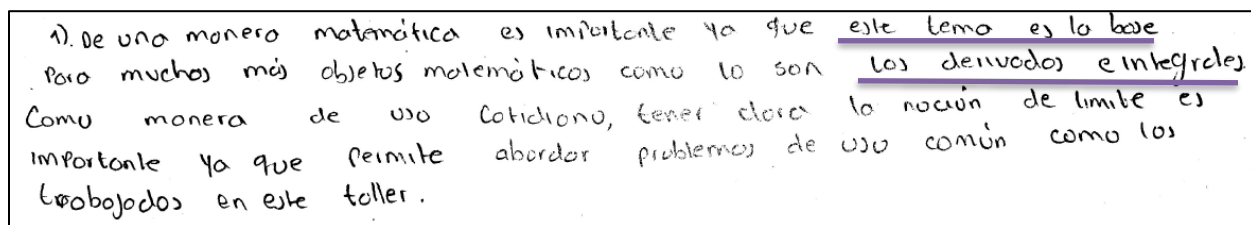 1). De una manera matemática es importante ya que este tema es la base
para muchos más objetos matemáticos como lo son las derivadas e integrales.
Como manera de uso cotidiano, tener clara la noción de limite es
importante ya que permite abordar problemas de uso común como los
trabajados en este taller.